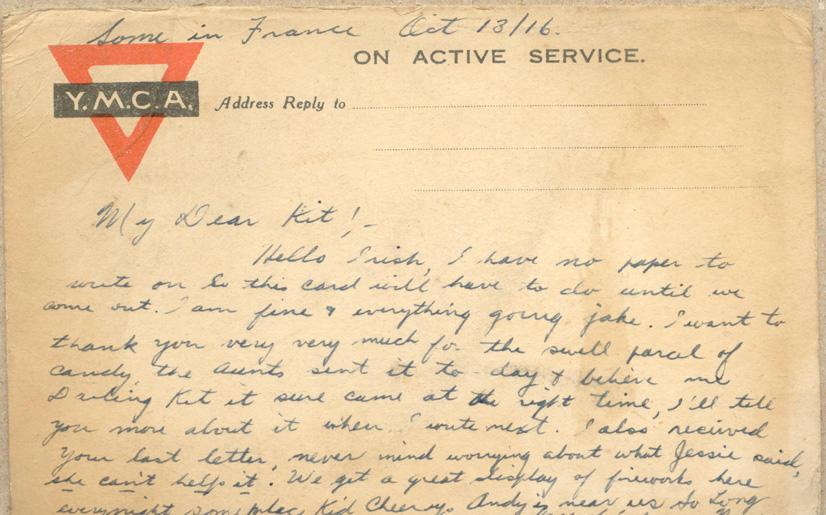 Some in France Oct 13/16.
ON ACTIVE SERVICE.
Y.M.C.A.
Address Reply to
My Dear Kit!-
Hello Irish, I have no paper to
write on so this card will have to do until we
come out. I am fine & everything going jake. I want to
thank you very very much for the swell parcel of
candy the Aunts sent it to day & believe me
Darling Kit it sure came at the right time, I'll tell
you more about it when I write next. I also received
your last letter, never mind worrying about what Jessie said,
she can't help it. We get a great display of fireworks here
everynight some place Kid Cheeryo Andy is near us So Long